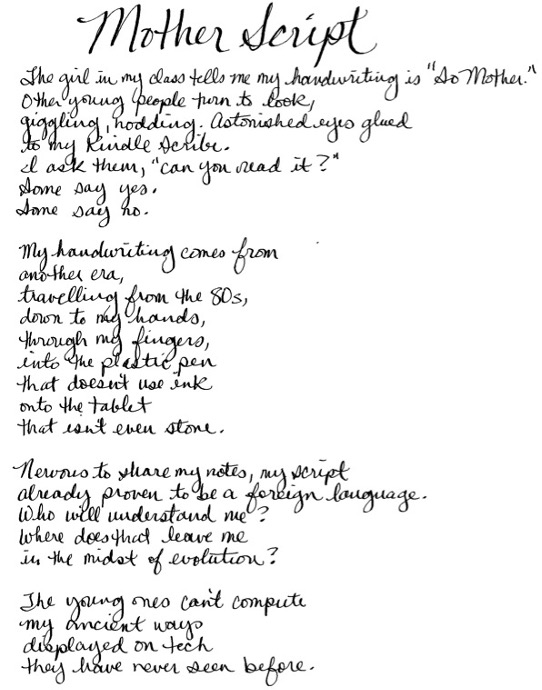 Mother Script
The girl in my class tells me my handwriting is "So Mother."
Other young people turn to look,
giggling, nodding. Astonished eyes glued
to my Kindle Scribe.
I ask them, "can you read it?"
Some say yes.
Some say no.
My handwriting comes from
another era,
travelling from the 80s,
down to my hands,
through my fingers,
into the plastic pen
that doesn't use ink
onto the tablet
that isn't even stone.
Nervous to share my notes, my script
already proven to be a foreign language.
Who will understand me?
Where does that leave me
in the midst of evolution?
The young ones can't compute
my ancient ways
displayed on tech
they have never seen before.